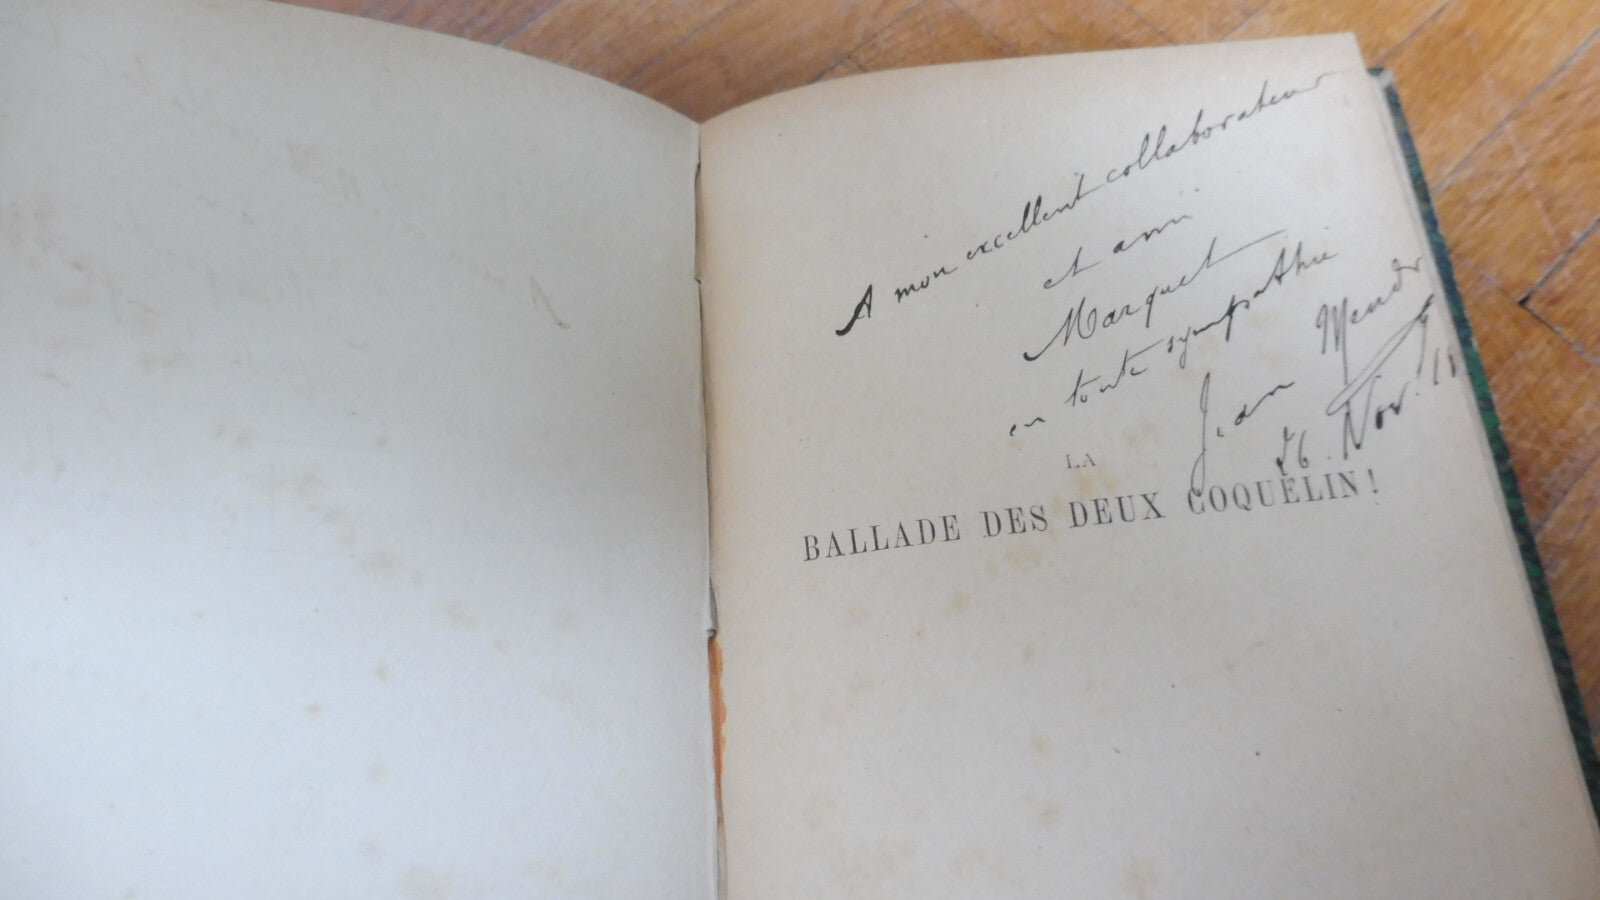 A mon excellent collaborateur
et ami
Marquet
en toute sympathie
Jean
26 Nov.
LA
BALLADE DES DEUX COQUELIN!